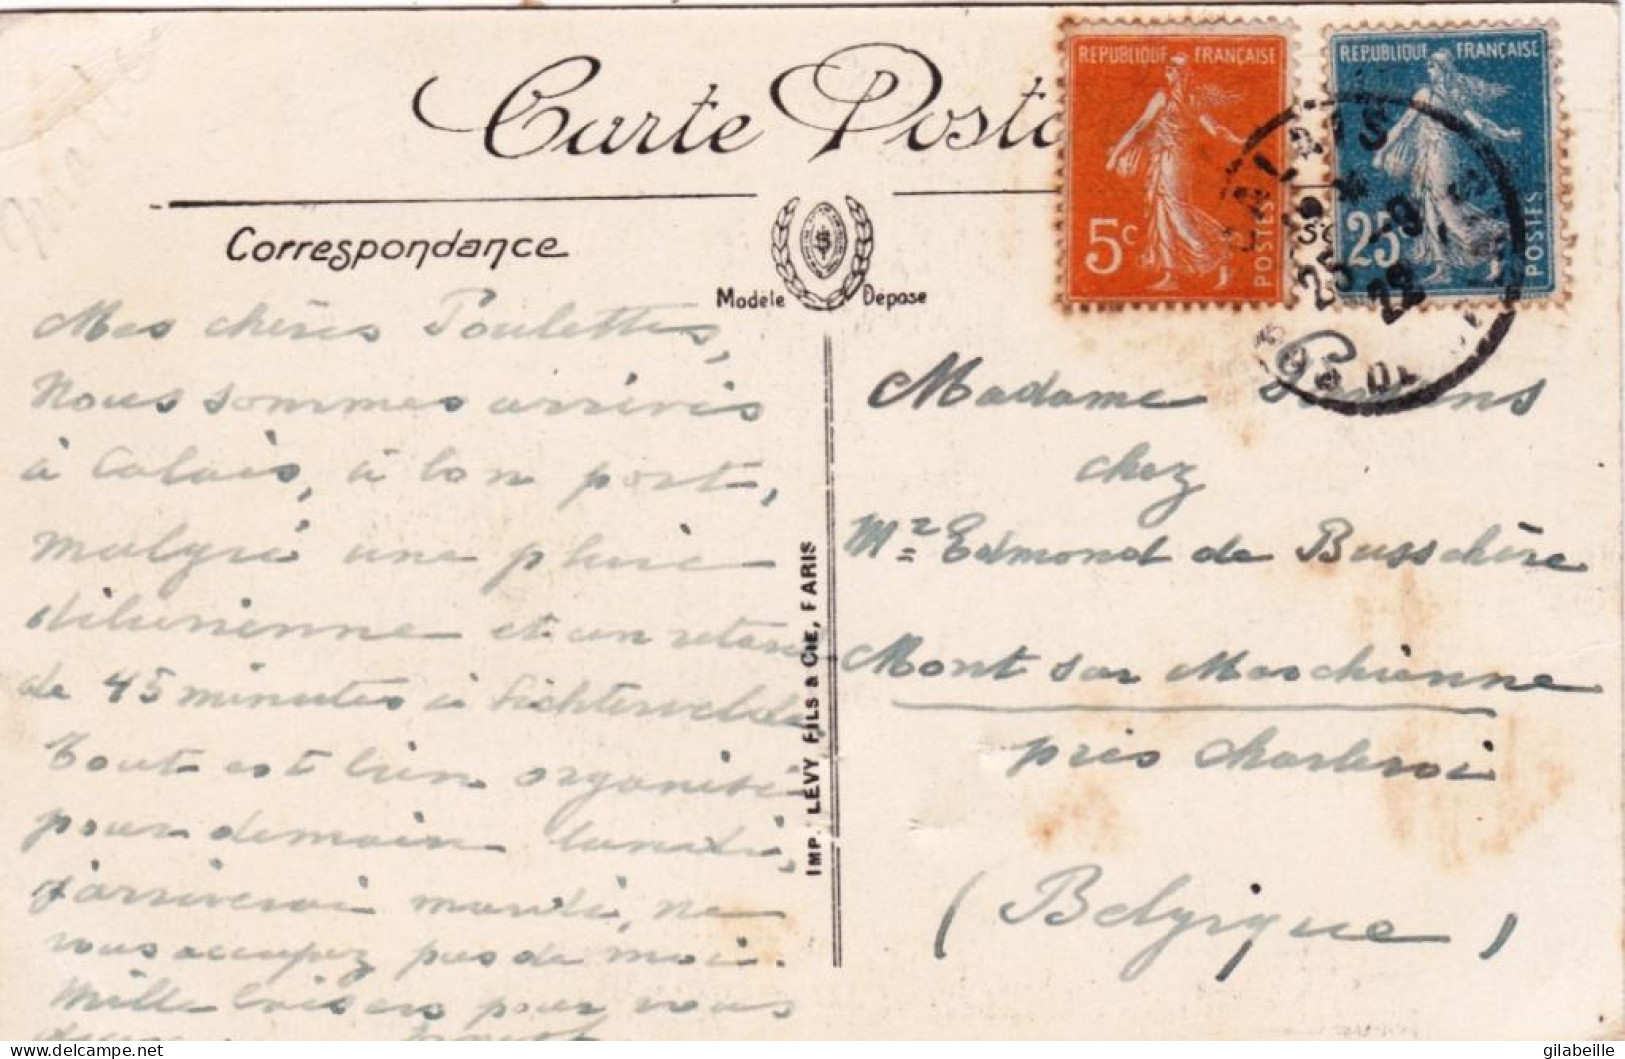 Carte Posta
REPUBLIQUE FRANÇAISE
5c
POSTES
REPUBLIQUE FRANÇAISE
25c
POSTES
CALAIS
25 - 9
22
Correspondance
Modèle Déposé
Mes chères Poulettes,
Nous sommes arrivés
à Calais, à bon port,
malgré une pluie
diluvienne et un retard
de 45 minutes à Lichtervelde
Tout est bien organisé
pour demain lundi,
j'arriverai mardi, ne
vous occupez pas de moi.
Mille baisers pour vous
IMP. LEVY FILS & CIE, PARIS
Madame
chez
Mr Edmond de Busschère
Mont sur Marchienne
près Charleroi
(Belgique)
gilabeille